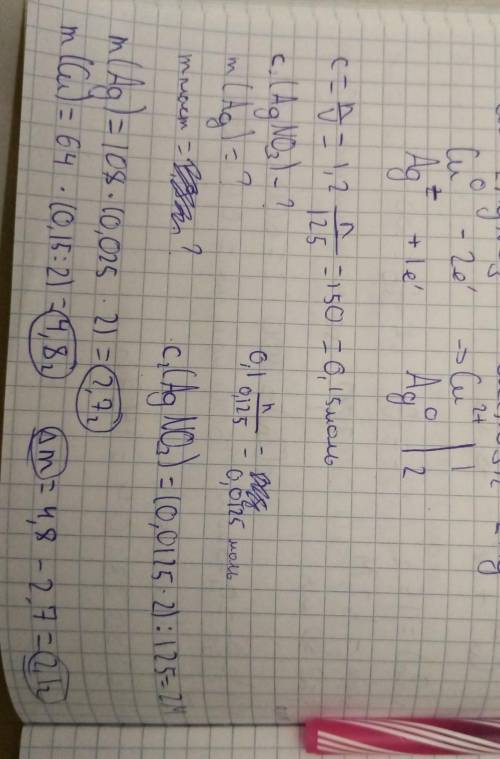 Cu⁰ - 2e⁻ → Cu²⁺ | 1
Ag⁺ + 1e⁻ Ag⁰ | 2
= 1,2 n/125 = 150 = 0,15 моль
C₁(AgNO₃) - ?
0,1 n/0,125 = 0,0125 моль
m(Ag) = ?
C₂(AgNO₃) = (0,0125 · 2) : 125 = 2
= ?
m(Ag) = 108 · (0,025 · 2) = 2,7г
m(Cu) = 64 · (0,15 : 2) = 4,8г Δm = 4,8 - 2,7 = 2,1г